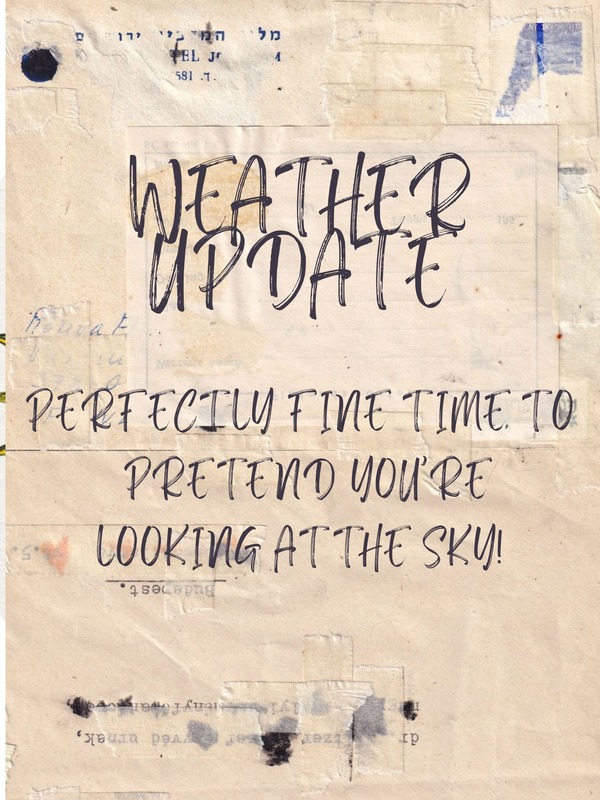 WEATHER
UPDATE
PERFECTLY FINE TIME TO
PRETEND YOU'RE
LOOKING AT THE SKY!
Budapest.